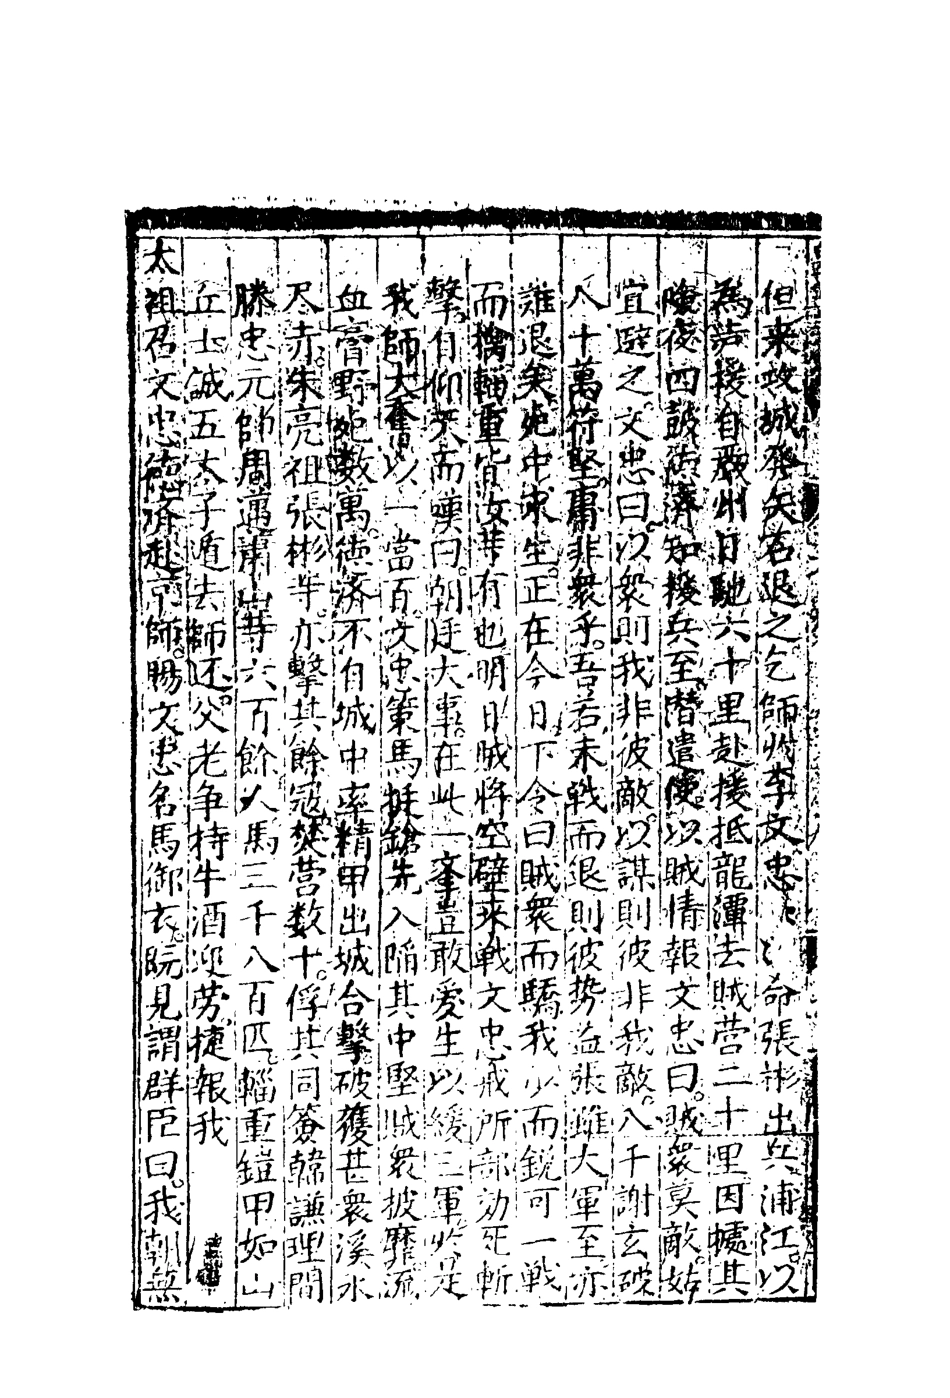 但来攻城發矢石退之乞師於李文忠忠命張彬出兵浦江以
為声援自嚴州日馳六十里赴援抵龍潭去賊营二十里因據其
險夜四鼓德濟知援兵至潜遣使以賊情報文忠曰賊衆莫敵姑
宜避之文忠曰以衆則我非彼敵以謀則彼非我敵八千謝玄破
八十萬符堅庸非衆乎吾若未戦而退則彼势益張雖大軍至亦
難退矣死中求生正在今日下令曰賊衆而驕我少而銳可一戦
而擒輜重皆汝等有也明日賊将空壁来戦文忠戒所部効死斬
擊自仰天而嘆曰朝廷大事在此一举豈敢愛生以緩三軍於是
我師大奮以一當百文忠策馬挺鎗先入陷其中堅賊衆披靡流
血膏野死数萬德济不自城中率精甲出城合擊破獲甚衆溪水
尽赤朱亮祖張彬等亦擊其餘冦焚营数十俘其同簽韓謙理問
滕忠元師周遇蕭山等六百餘人馬三千八百匹輜重鎧甲如山
丘士誠五太子遁去師还父老争持牛酒迎劳捷報我
太祖召文忠德济赴京師賜文忠名馬御衣既見謂群臣曰我朝無